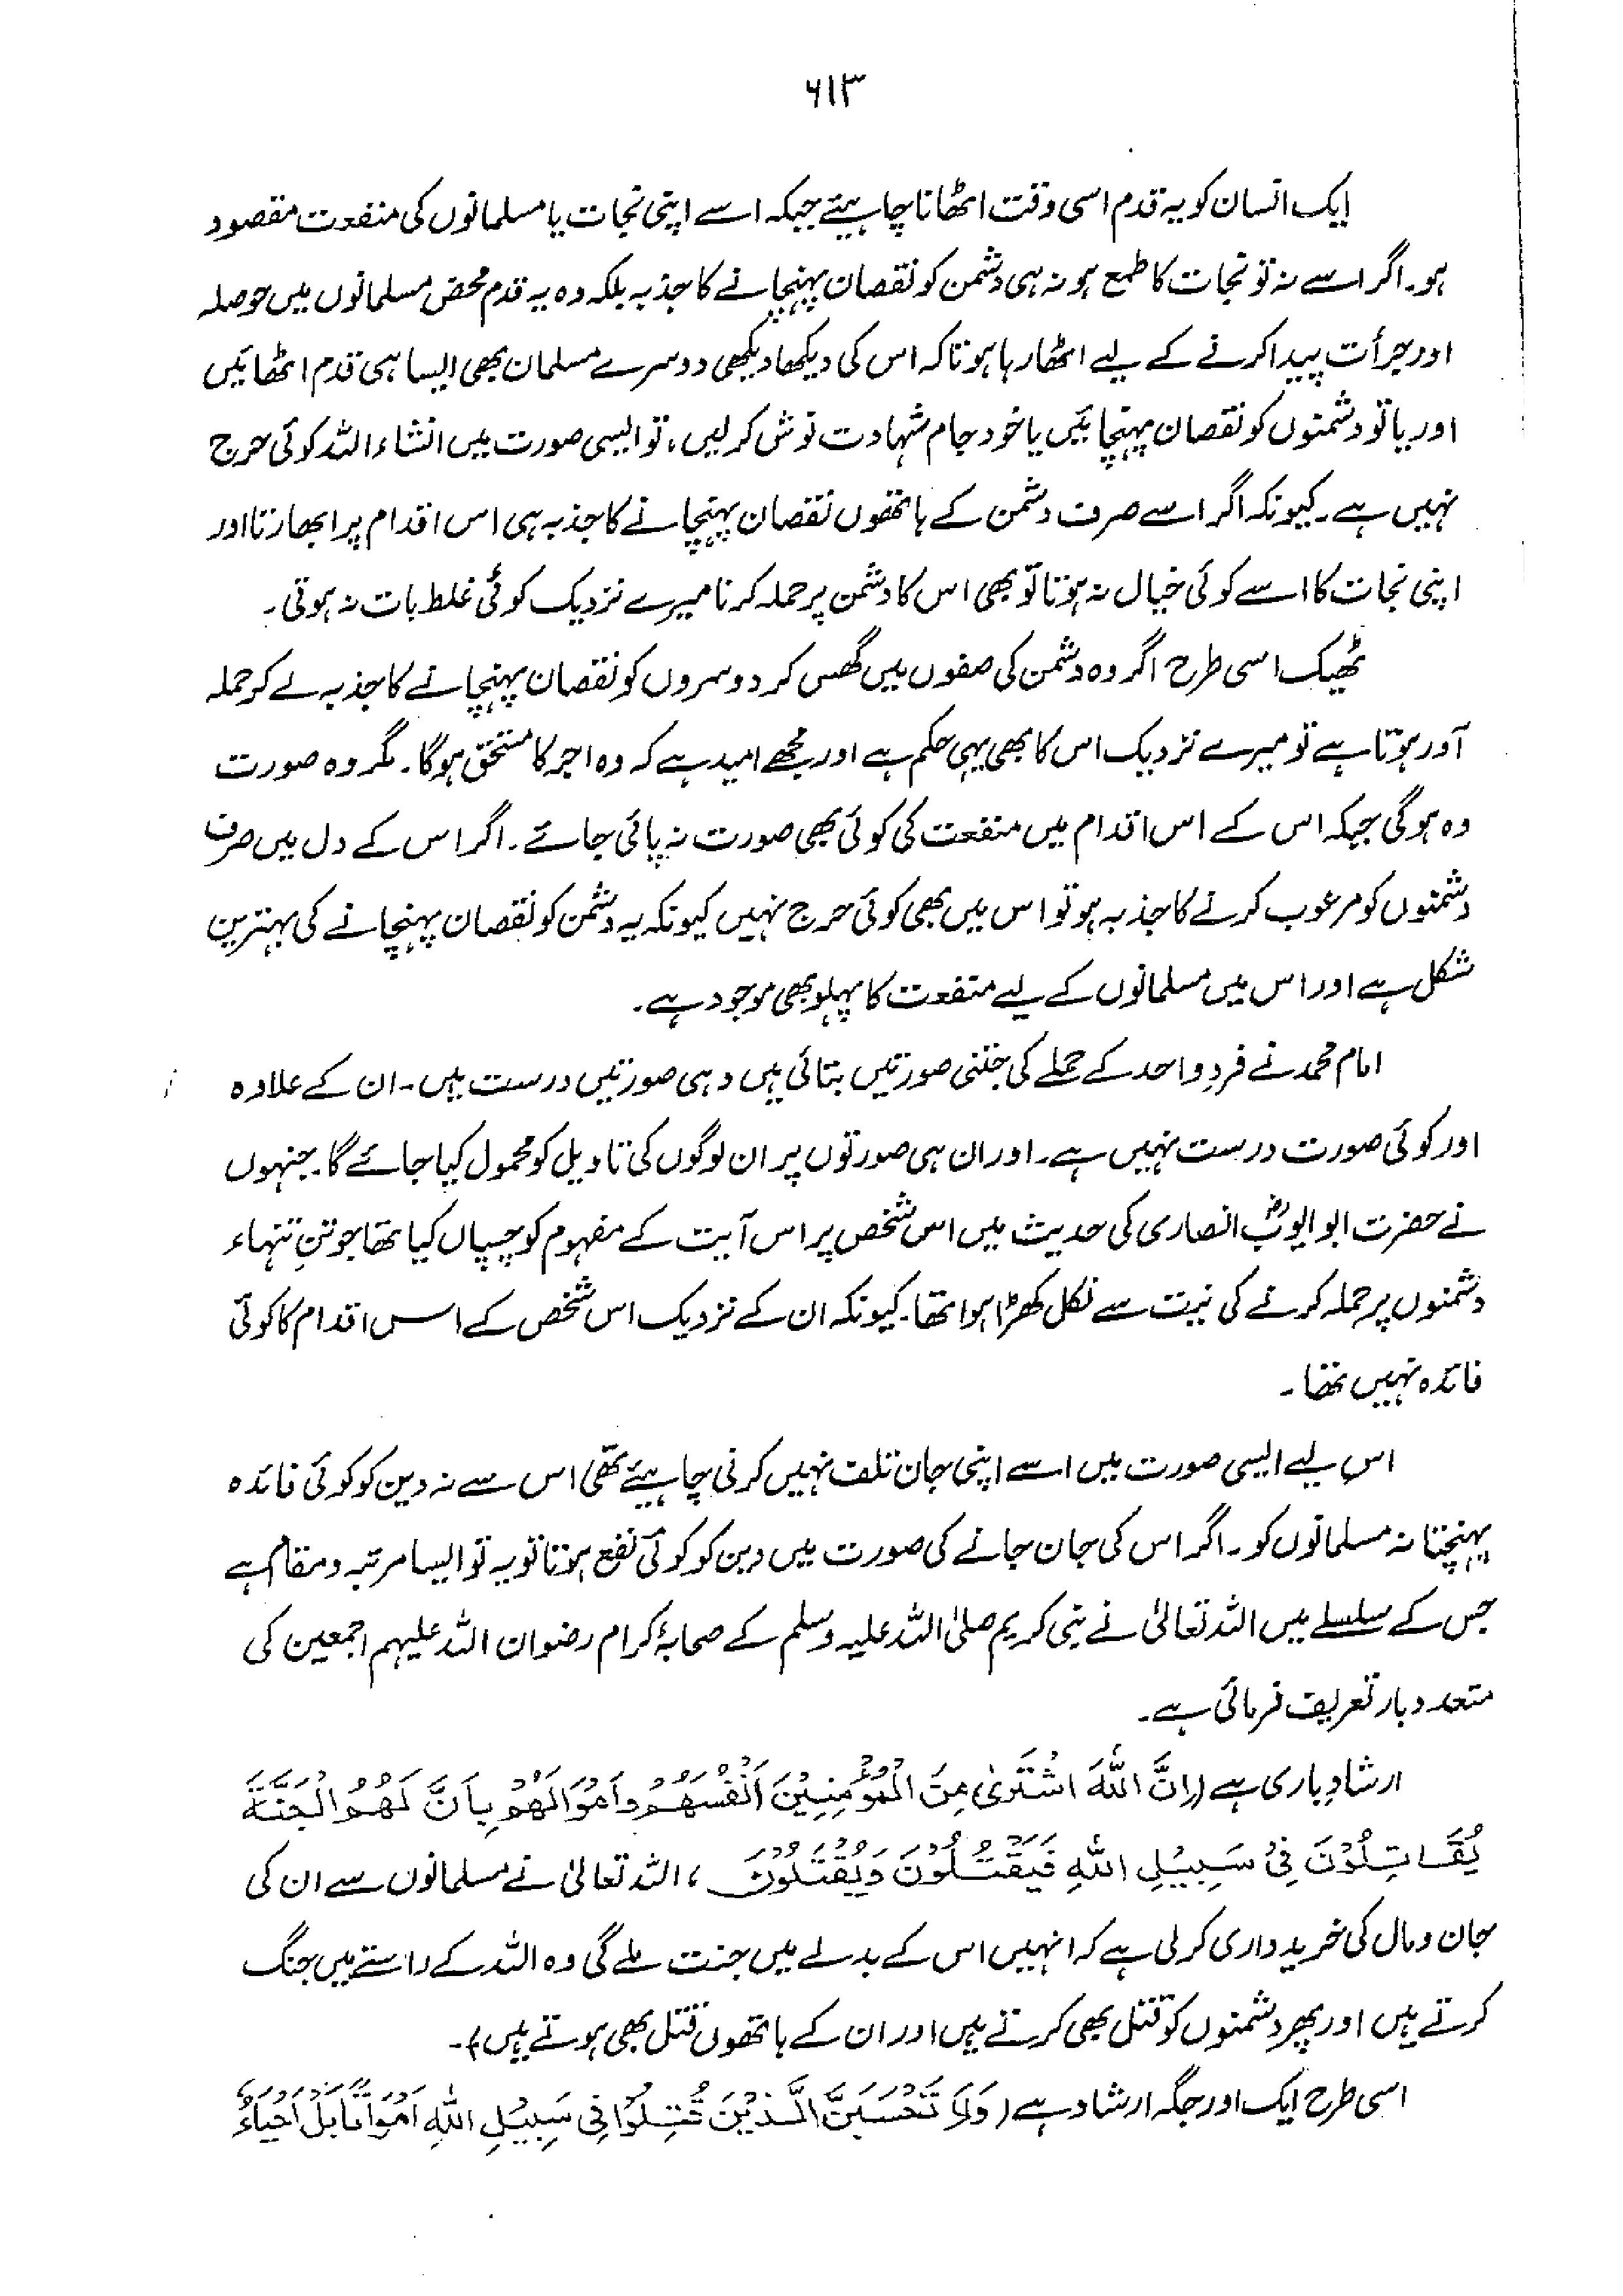 ۶۱۳
ایک انسان کو یہ قدم اسی وقت اٹھانا چاہیئے جبکہ اسے اپنی نجات یا مسلمانوں کی منفعت مقصود
ہو۔ اگر اسے نہ تو نجات کا طمع ہو نہ ہی دشمن کو نقصان پہنچانے کا جذبہ بلکہ وہ یہ قدم محض مسلمانوں میں حوصلہ
اور جرأت پیدا کرنے کے لیے اٹھا رہا ہو تاکہ اس کی دیکھا دیکھی دوسرے مسلمان بھی ایسا ہی قدم اٹھائیں
اور یا تو دشمنوں کو نقصان پہنچائیں یا خود جام شہادت نوش کر لیں، تو ایسی صورت میں انشاء اللہ کوئی حرج
نہیں ہے۔ کیونکہ اگر اسے صرف دشمن کے ہاتھوں نقصان پہنچانے کا جذبہ ہی اس اقدام پر ابھارتا اور
اپنی نجات کا اسے کوئی خیال نہ ہوتا تو بھی اس کا دشمن پر حملہ کرنا میرے نزدیک کوئی غلط بات نہ ہوتی۔
ٹھیک اسی طرح اگر وہ دشمن کی صفوں میں گھس کر دوسروں کو نقصان پہنچانے کا جذبہ لے کر حملہ
آور ہوتا ہے تو میرے نزدیک اس کا بھی یہی حکم ہے اور مجھے امید ہے کہ وہ اجر کا مستحق ہوگا۔ مگر وہ صورت
وہ ہوگی جبکہ اس کے اس اقدام میں منفعت کی کوئی بھی صورت نہ پائی جائے۔ اگر اس کے دل میں صرف
دشمنوں کو مرعوب کرنے کا جذبہ ہو تو اس میں بھی کوئی حرج نہیں کیونکہ یہ دشمن کو نقصان پہنچانے کی بہترین
شکل ہے اور اس میں مسلمانوں کے لیے منفعت کا پہلو بھی موجود ہے۔
امام محمد نے فردِ واحد کے حملے کی جتنی صورتیں بتائی ہیں وہی صورتیں درست ہیں۔ ان کے علاوہ
اور کوئی صورت درست نہیں ہے۔ اور ان ہی صورتوں پر ان لوگوں کی تاویل کو محمول کیا جائے گا۔ جنہوں
نے حضرت ابو ایوبؓ انصاری کی حدیث میں اس شخص پر اس آیت کے مفہوم کو چسپاں کیا تھا جو تنِ تنہاء
دشمنوں پر حملہ کرنے کی نیت سے نکل کھڑا ہوا تھا۔ کیونکہ ان کے نزدیک اس شخص کے اس اقدام کا کوئی
فائدہ نہیں تھا۔
اس لیے ایسی صورت میں اسے اپنی جان تلف نہیں کرنی چاہیئے تھی اس سے نہ دین کو کوئی فائدہ
پہنچتا نہ مسلمانوں کو۔ اگر اس کی جان جانے کی صورت میں دین کو کوئی نفع ہوتا تو یہ تو ایسا مرتبہ و مقام ہے
جس کے سلسلے میں اللہ تعالیٰ نے نبی کریم صلی اللہ علیہ وسلم کے صحابۂ کرام رضوان اللہ علیہم اجمعین کی
متعدد بار تعریف فرمائی ہے۔
ارشادِ باری ہے (اِنَّ اللّٰهَ اشْتَرٰى مِنَ الْمُؤْمِنِيْنَ اَنْفُسَهُمْ وَاَمْوَالَهُمْ بِاَنَّ لَهُمُ الْجَنَّةَ
يُقَاتِلُوْنَ فِىْ سَبِيْلِ اللّٰهِ فَيَقْتُلُوْنَ وَيُقْتَلُوْنَ، اللہ تعالیٰ نے مسلمانوں سے ان کی
جان و مال کی خریداری کر لی ہے کہ انہیں اس کے بدلے میں جنت ملے گی وہ اللہ کے راستے میں جنگ
کرتے ہیں اور پھر دشمنوں کو قتل بھی کرتے ہیں اور ان کے ہاتھوں قتل بھی ہوتے ہیں)۔
اسی طرح ایک اور جگہ ارشاد ہے (وَلَا تَحْسَبَنَّ الَّذِيْنَ قُتِلُوْا فِى سَبِيْلِ اللّٰهِ اَمْوَاتًا بَلْ اَحْيَاءٌ